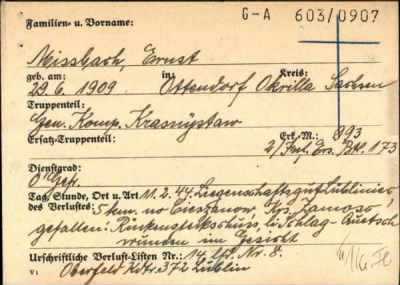 G-A 603/0907
Familien- u. Vorname:
Missbach, Ernst
geb. am: in: Kreis:
29.6.1909 Ottendorf Okrilla Sachsen
Truppenteil:
Gen. Komp. Krasnystaw
Ersatz-Truppenteil: Erk.-M.: 393
2/ Ers. Btl. 173
Dienstgrad:
O'Gefr.
Tag, Stunde, Ort u. Art 11.2.44. Liegenschaftsgut Lubliniec
des Verlustes: 5 km. no Cieszanow, Krs. Zamosc,
gefallen: Rückensteckschuss, li. Schlag-Quetsch
wunden im Gesicht
Urschriftliche Verlust-Listen Nr.: 14 Nr. 8.
v: Oberfeld Kdtr. 372 Lublin